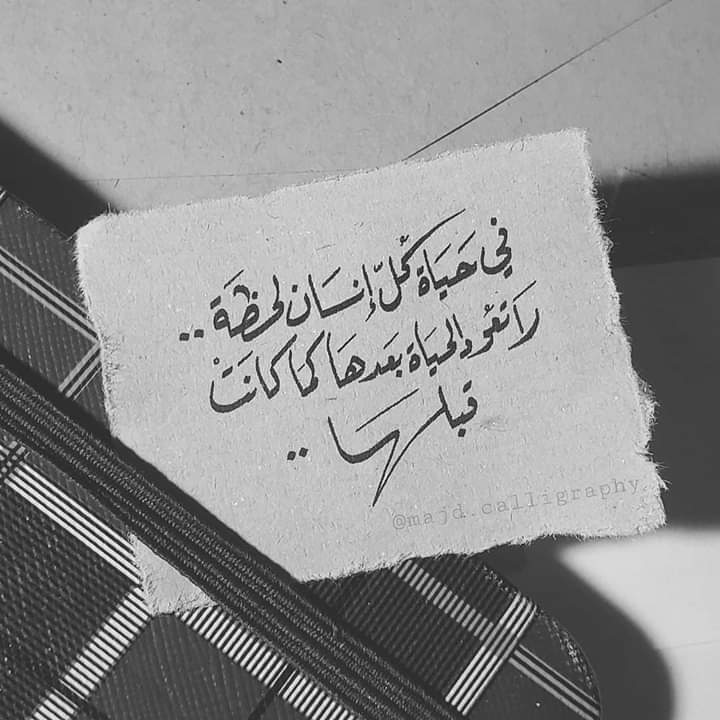 في حَيَاة كُلّ إنسَان لحظَة ..
لَا تعُود الحيَاة بَعدهَا كمَا كانَتْ
قبلهَا ..
@majd.calligraphy